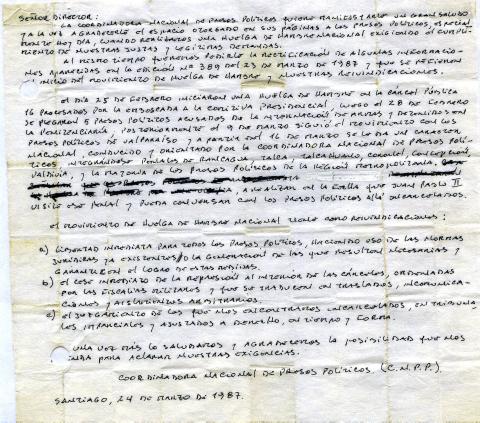 SEÑOR DIRECTOR:
LA COORDINADORA NACIONAL DE PRESOS POLÍTICOS QUIERE MANIFESTARLE UN GRAN SALUDO
Y A LA VEZ AGRADECERLE EL ESPACIO OTORGADO EN SUS PÁGINAS A LOS PRESOS POLÍTICOS, ESPECIAL
MENTE HOY DÍA, CUANDO REALIZAMOS UNA HUELGA DE HAMBRE NACIONAL EXIGIENDO EL CUMPLI-
MIENTO DE NUESTRAS JUSTAS Y LEGÍTIMAS DEMANDAS.
AL MISMO TIEMPO QUEREMOS PEDIRLE LA RECTIFICACIÓN DE ALGUNAS INFORMACIO-
NES APARECIDAS EN LA EDICIÓN Nº 389 DEL 23 DE MARZO DE 1987 Y QUE SE REFIEREN
AL INICIO DEL MOVIMIENTO DE HUELGA DE HAMBRE Y NUESTRAS REIVINDICACIONES.
EL DÍA 25 DE FEBRERO INICIARON UNA HUELGA DE HAMBRE EN LA CÁRCEL PÚBLICA
16 PROCESADOS POR LA EMBOSCADA A LA COMITIVA PRESIDENCIAL, LUEGO EL 28 DE FEBRERO
SE PLEGARON 5 PRESOS POLÍTICOS ACUSADOS DE LA INTERNACIÓN DE ARMAS Y DETENIDOS EN
LA PENITENCIARÍA, POSTERIORMENTE EL 9 DE MARZO SIGUIÓ EL MOVIMIENTO CON LOS
PRESOS POLÍTICOS DE VALPARAÍSO Y A PARTIR DEL 16 DE MARZO SE LE DA UN CARÁCTER
NACIONAL, CONDUCIDO Y ORIENTADO POR LA COORDINADORA NACIONAL DE PRESOS POLÍ-
TICOS, INTEGRÁNDOSE PENALES DE RANCAGUA, TALCA, TALCAHUANO, CORONEL, CONCEPCIÓN,
VALDIVIA, Y LA MAYORÍA DE LOS PRESOS POLÍTICOS DE LA REGIÓN METROPOLITANA.
A REALIZAR EN LA FECHA QUE JUAN PABLO II
VISITE ESE PENAL Y PUEDA CONVERSAR CON LOS PRESOS POLÍTICOS ALLÍ ENCARCELADOS.
EL MOVIMIENTO DE HUELGA DE HAMBRE NACIONAL TIENE COMO REIVINDICACIONES:
a) LIBERTAD INMEDIATA PARA TODOS LOS PRESOS POLÍTICOS, HACIENDO USO DE LAS NORMAS
JURÍDICAS YA EXISTENTES O LA GENERACIÓN DE LAS QUE RESULTEN NECESARIAS Y
GARANTICEN EL LOGRO DE ESTAS MEDIDAS.
b) EL CESE INMEDIATO DE LA REPRESIÓN AL INTERIOR DE LAS CÁRCELES, ORDENADAS
POR LAS FISCALÍAS MILITARES Y QUE SE TRADUCEN EN TRASLADOS, INCOMUNICA-
CIONES Y AISLACIONES ARBITRARIOS.
c) EL JUZGAMIENTO DE LOS QUE NOS ENCONTRAMOS ENCARCELADOS, EN TRIBUNA-
LES IMPARCIALES Y AJUSTADOS A DERECHO, EN TIEMPO Y FORMA.
UNA VEZ MÁS LO SALUDAMOS Y AGRADECEMOS LA POSIBILIDAD QUE NOS
BRINDA PARA ACLARAR NUESTRAS EXIGENCIAS.
COORDINADORA NACIONAL DE PRESOS POLÍTICOS. (C.N.P.P.).
SANTIAGO, 24 DE MARZO DE 1987.